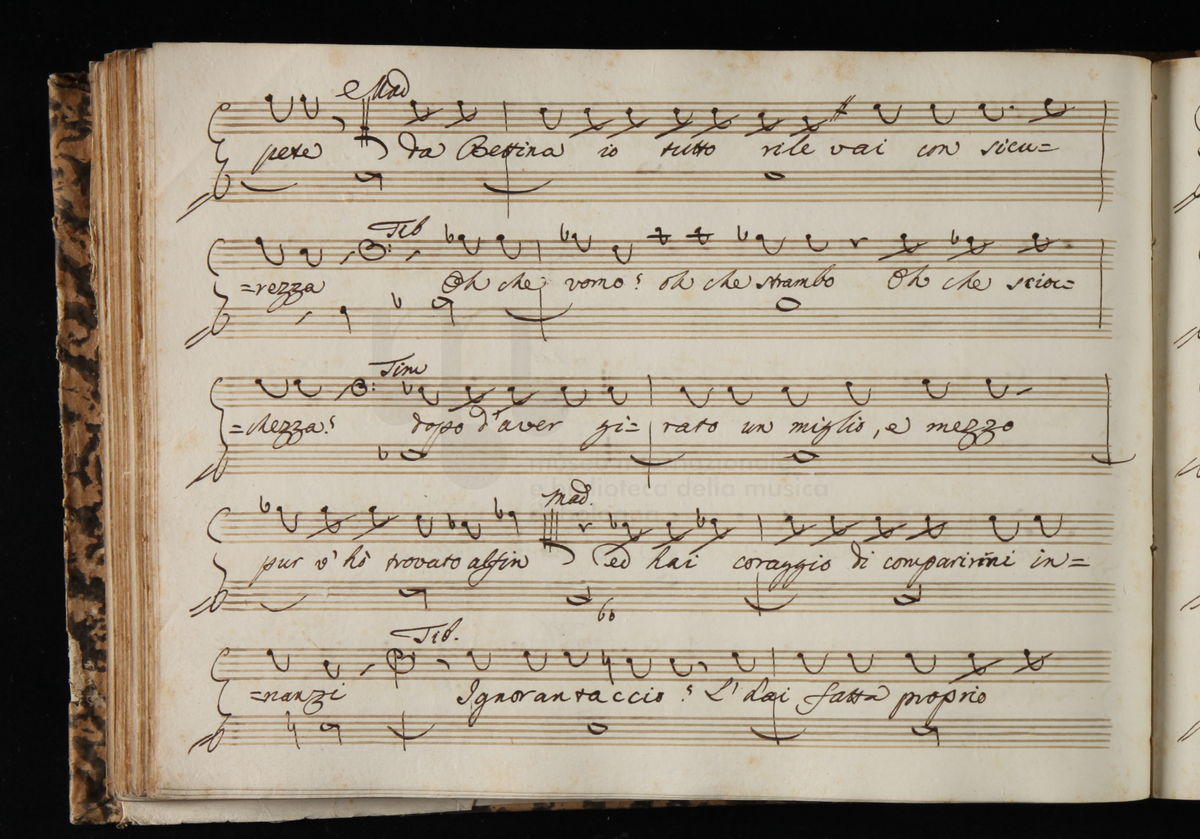 e Mad
pete da Bettina io tutto rile vai con sicu=
Tib
=rezza Oh che vomo! oh che strambo Oh che scioc=
Tim
=chezza! dopo d'aver gi= rato un miglio, e mezzo
Mad.
pur v'hò trovato alfin ed hai coraggio di comparirmi in=
Tib.
=nanzi Ignorantaccio! L'hai fatta proprio
e biblioteca della musica